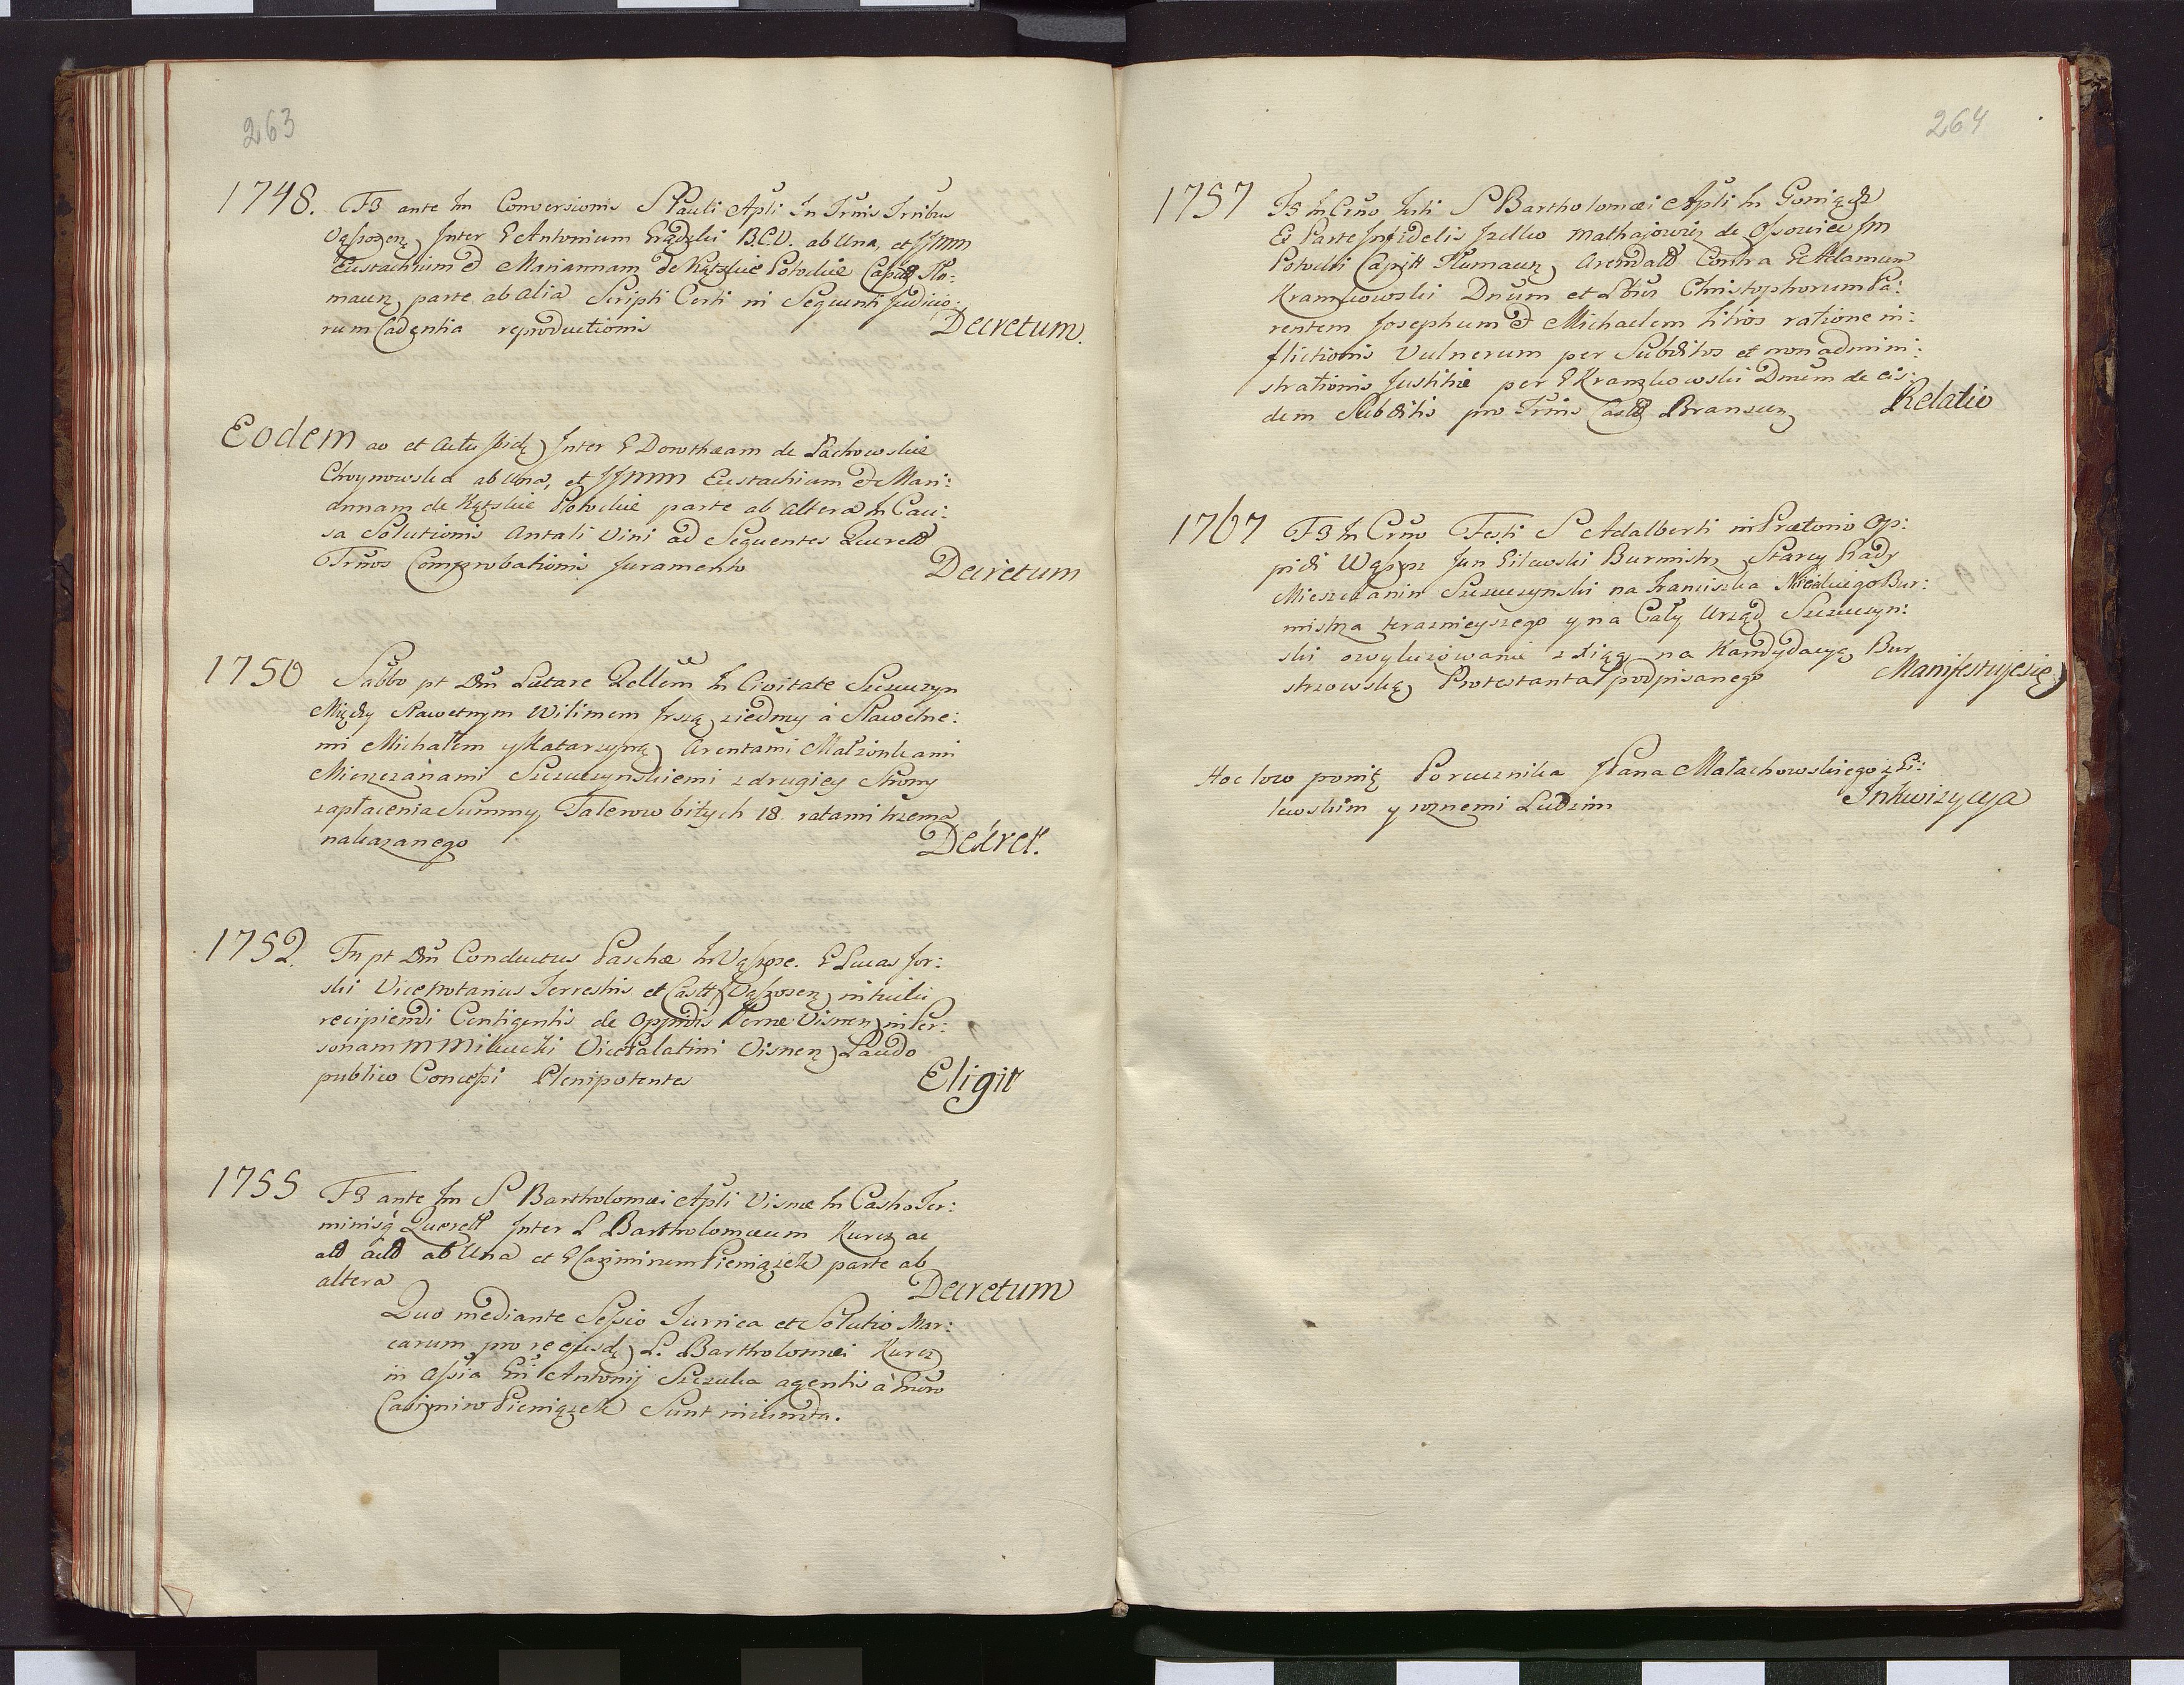 263
1748. F3 ante Fm Conversionis S Pauli Apli In Trnis Trnibus
Vąsosen Inter G Antonium Grądzki B.C.V. ab Una, et JJmm
Eustachium & Mariannam de Kątskie Potockie Capit Tło-
macen parte ab alia Scripti Certi in Sequenti Judicio:
rum Cadentia reproductionis Decretum.
Eodem ao et Actu ibid Inter G Dorotheam de Lachowskie
Choynowska ab Una, et JJmm Eustachium & Mari:
annam de Kątskie Potockie parte ab altera In Cau:
sa Solutionis Antali Vini ad Sequentes Querell
Trnos Comprobationis Juramento Decretum
1750 Sabbo pt Dm Lætare Qellem In Civitate Szczuczyn
Między Sławetnym Wilimem Irszą ziedney à Sławetne:
mi Michałem y Katarzyną Arentami Małzonkami
Mieszczanami Szczuczynskiemi z drugiey Strony
zapłacenia Summy Talerow bitych 18 ratami trzema
nakazanego Decret.
1752. In pt Dm Conductus Paschæ In Vąsosze. G Lucas Jor:
ski Vicenotarius Terrestris et Castr Vąsosen intuitu
recipiendi Contigentis de Oppidis Terræ Visnen in Per:
sonam M Milewski Vicepalatini Visnen Laudo
publico Concessi Plenipotentes Eligit
1755 F3 ante Fm S Bartholomæi Apli Visnæ In Castro Ter:
minisq Querell Inter L Bartholomæum Kurcz ac
all act ab Una et G Cazimirum Pieniązek parte ab
altera Decretum
Quo mediante Sessio Turrica et Solutio Mar:
carum pro re ejusd L. Bartholomæi Kurcz
in assia Gn Antonij Szczuka agentis à Gnro
Casimiro Pieniązek Sunt injuncta.
264
1757 F3 In Crno Festi S Bartholomæi Apli In Goniądz
Ex Parte Infidelis Jzelko Mathajowicz de Ossowiec Jm
Potocki Capitt Tłumacen Arendatt Contra G Adamum
Kramkowski Dnum et Lbos Christophorum Pa:
rentem Josephum & Michaelem Filios ratione in:
flictionis Vulnerum per Subditos et non admini:
strationis Justitiæ per G Kramkowski Dnum de eis:
dem Subditis pro Trnis Castr Bransen Relatio
1767 F3 In Crno Festi S Adalberti in Prætorio Op:
pidi Wąsosz Jan Gilewski Burmistr Starcy Rady
Mieszczanin Szczuczynski na Franciszka Bur:
mistrza teraznieyszego y na Cały Urząd Szczuczyn:
ski o wyluzowanie z xiąg na Kandydacyą Bur
strzowską Protestanta podpisanego Manifestuje się
Hoc loco ponię Porucznika JPana Małachowskiego z Gi:
lewskim y roznemi Ludzmi Inkwizycya